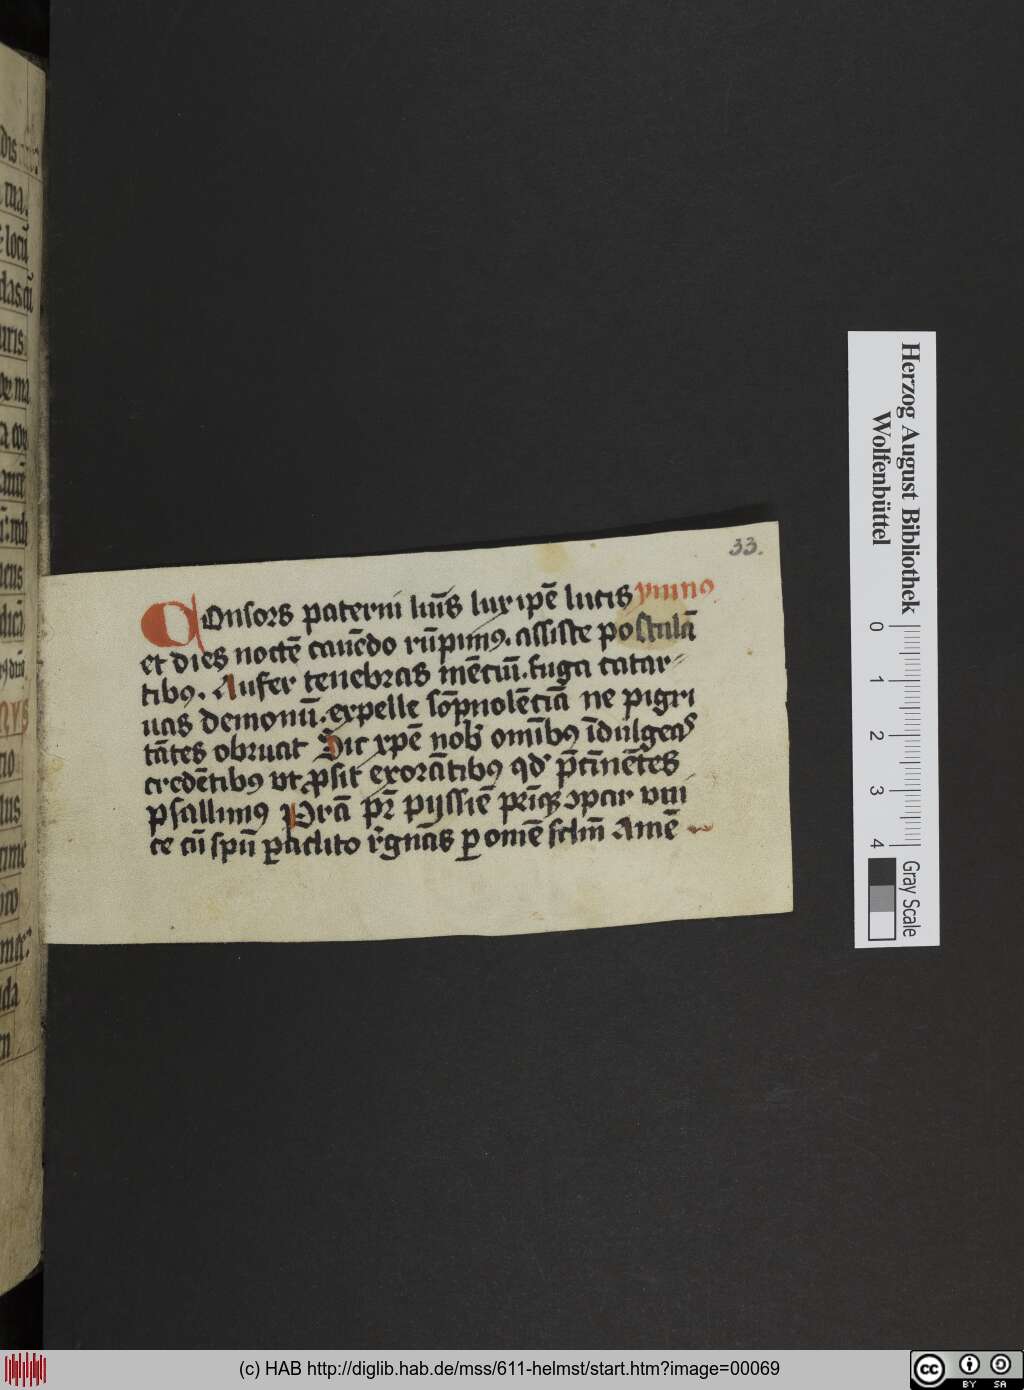 33.
Consors paterni lūīs lux ipē lucis ymnꝰ
et dies noctē canēdo rūpimꝰ. assiste postulā
tibꝰ. Aufer tenebras mētiū. fuga catar-
uas demonū. expelle sōpnolētiā ne pigri
tātes obruat Sic xpē nob̄ omībꝰ īdulgeas
credētibꝰ vt ꝓsit exorātibꝰ qd̄ p̄cinētes
psallimꝰ Prā pr̄ pyssiē pr̄īqꝫ ꝯpar vni
ce cū spū ꝑaclito r̄gnās ꝑ omē sclm̄ Amē
dis
ma.
locū
das cū
uris
Herzog August Bibliothek
Wolfenbüttel
0 1 2 3 4
Gray Scale
(c) HAB http://diglib.hab.de/mss/611-helmst/start.htm?image=00069
cc BY SA